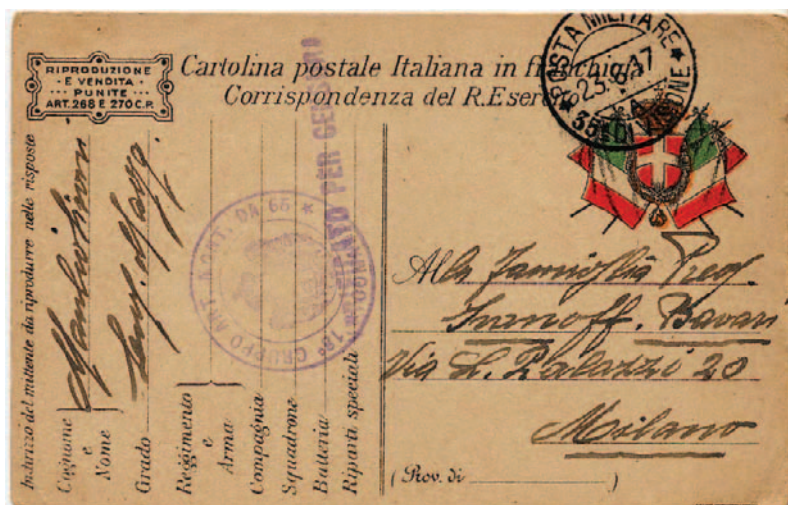 RIPRODUZIONE
· E VENDITA ·
··· PUNITE ···
ART. 268 E 270 C.P.
Cartolina postale Italiana in franchigia
Corrispondenza del R. Eserc
POSTA MILITARE
23.8.17
35ª DIVISIONE
Indirizzo del mittente da riprodurre nelle risposte
Cognome
e
Nome
Grado
Reggimento
e
Arma
Compagnia
Squadrone
Batteria
Riparti speciali
GRUPPO ART. MONT. DA 65 *
PER
Alla Famiglia
Bavari
Via L. Palazzi 20
Milano
(Prov. di)